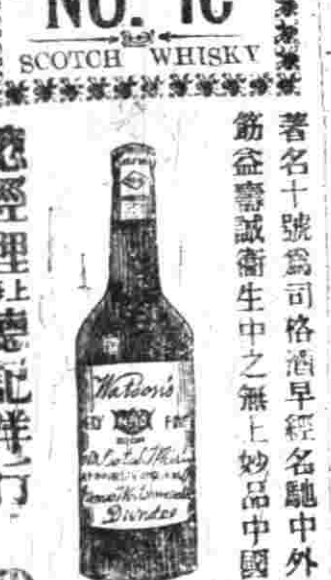 NO. 10
SCOTCH WHISKY
著名十號爲司格酒早經名馳中外
筋益壽誠衛生中之無上妙品中國
總經理上德記洋行
Watson's
Dundee